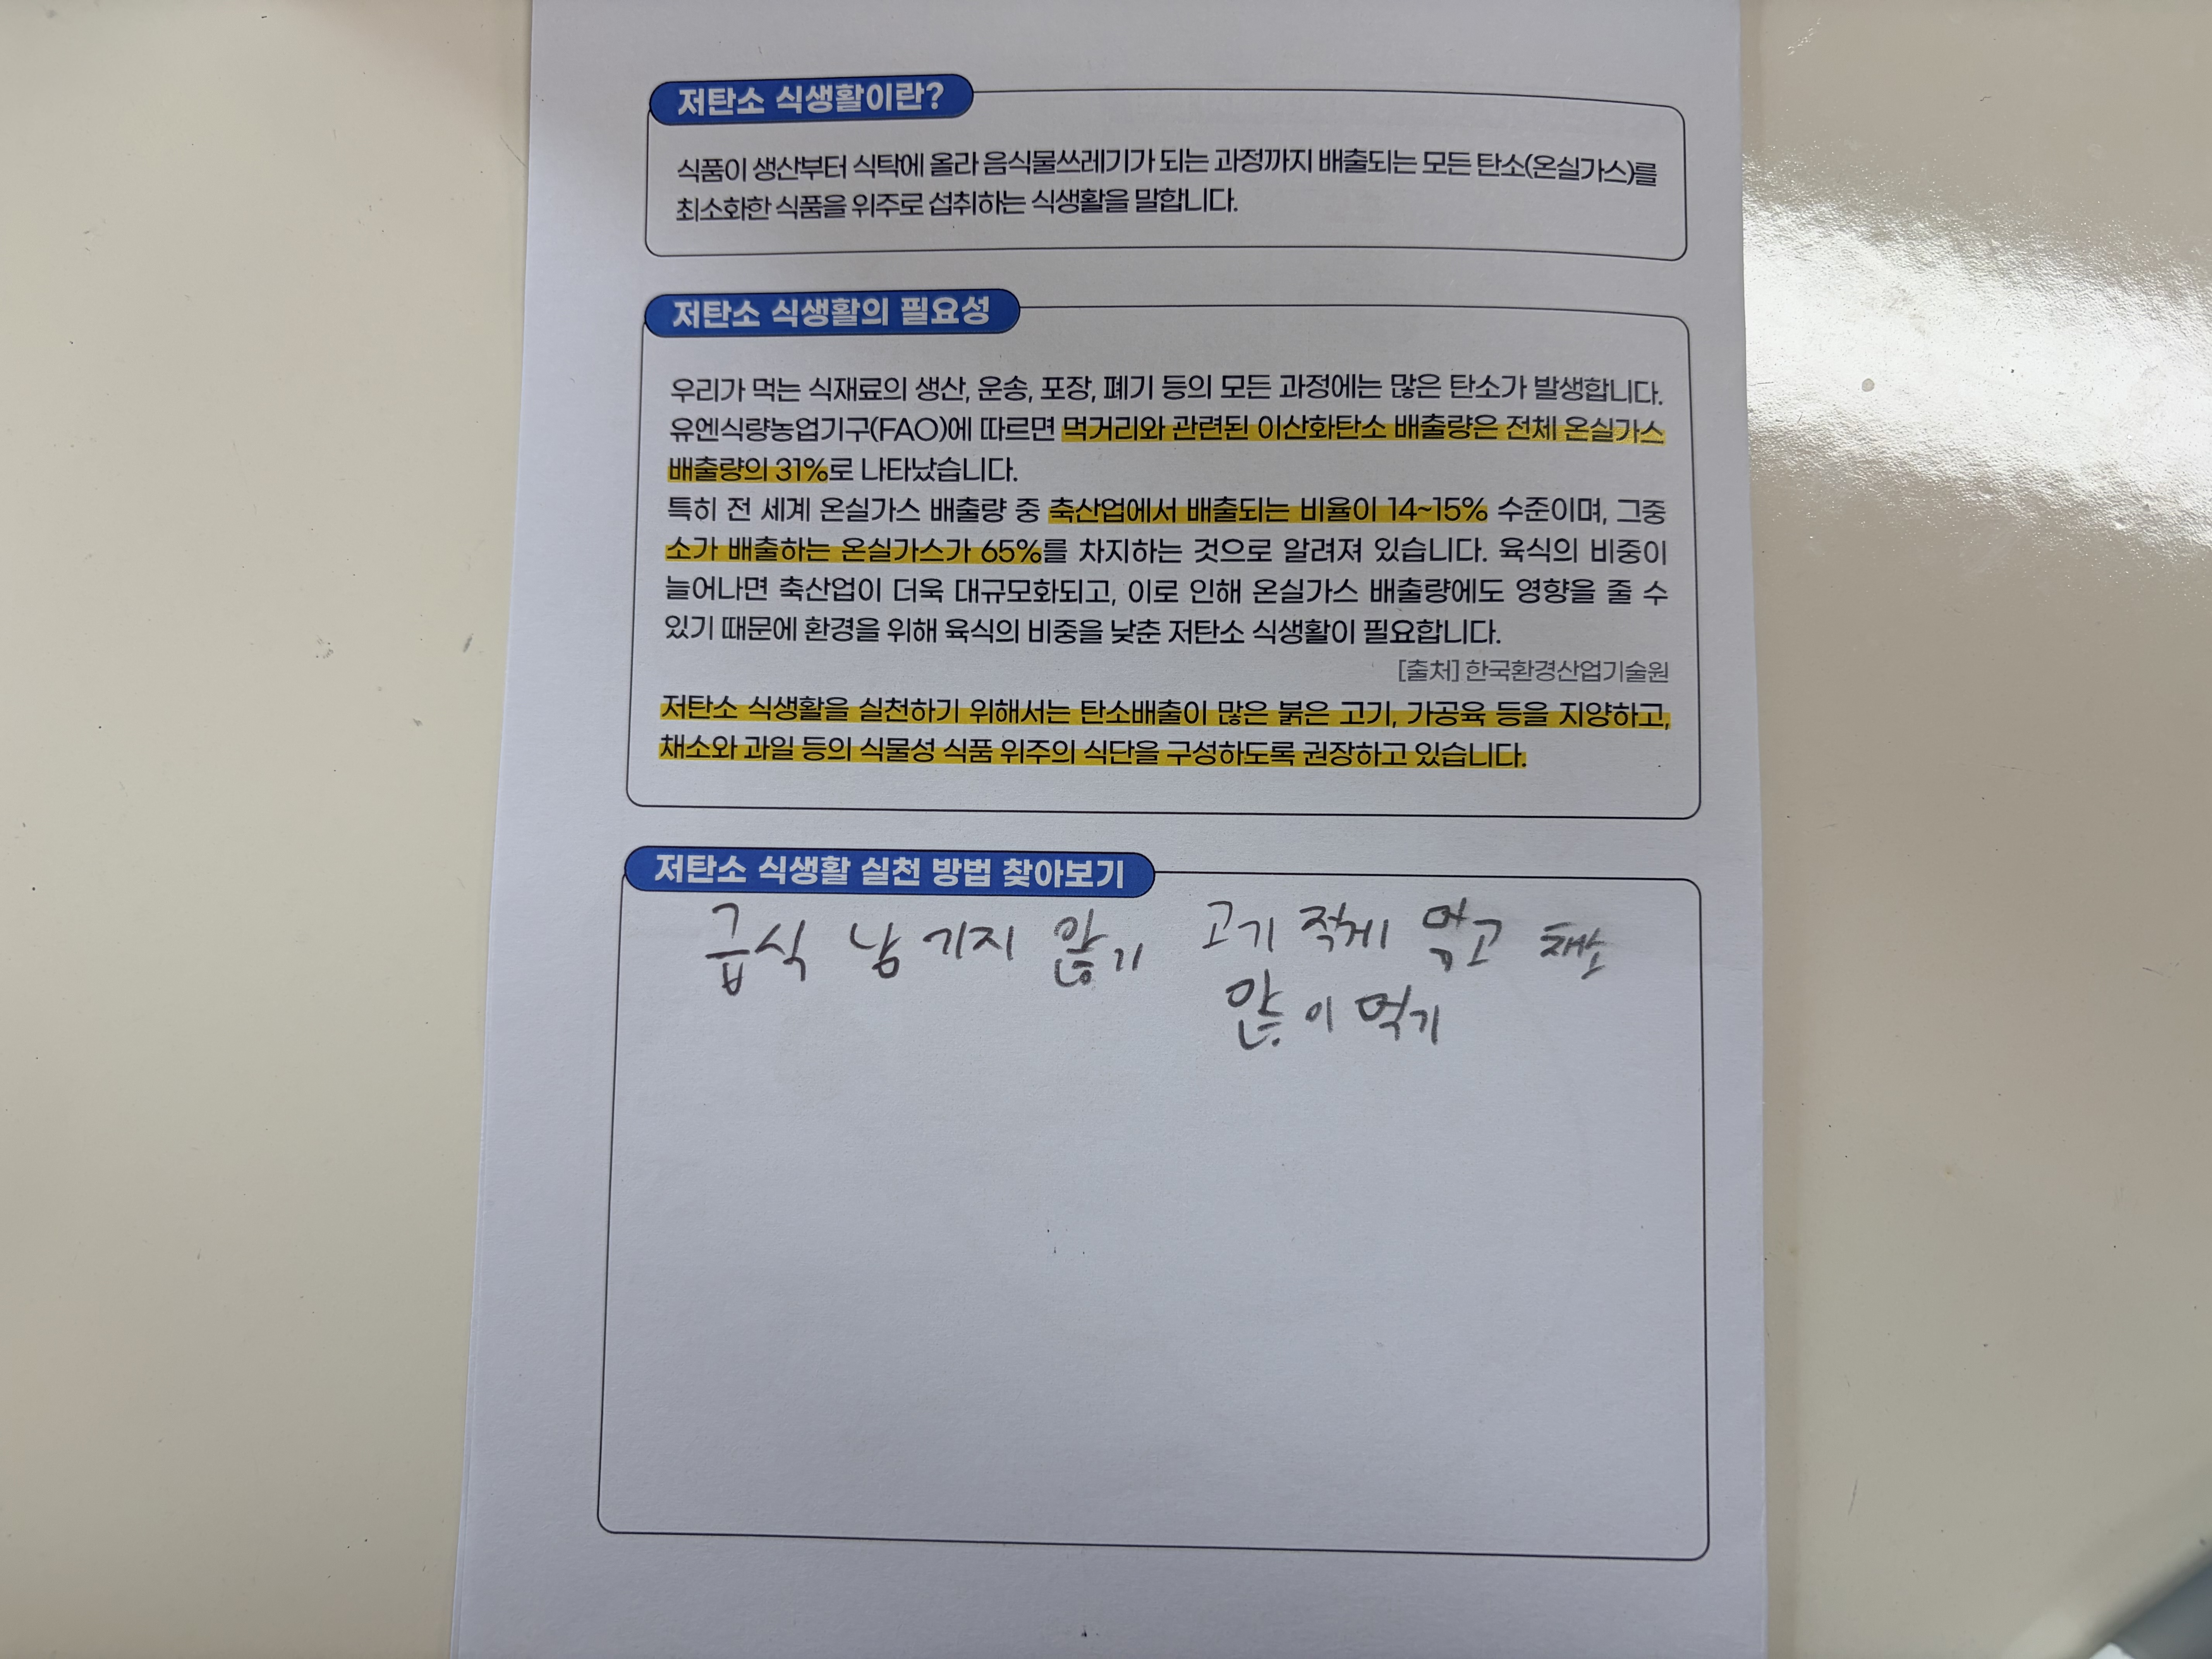 저탄소 식생활이란?
식품이 생산부터 식탁에 올라 음식물쓰레기가 되는 과정까지 배출되는 모든 탄소(온실가스)를
최소화한 식품을 위주로 섭취하는 식생활을 말합니다.
저탄소 식생활의 필요성
우리가 먹는 식재료의 생산, 운송, 포장, 폐기 등의 모든 과정에는 많은 탄소가 발생합니다.
유엔식량농업기구(FAO)에 따르면 먹거리와 관련된 이산화탄소 배출량은 전체 온실가스
배출량의 31%로 나타났습니다.
특히 전 세계 온실가스 배출량 중 축산업에서 배출되는 비율이 14~15% 수준이며, 그중
소가 배출하는 온실가스가 65%를 차지하는 것으로 알려져 있습니다. 육식의 비중이
늘어나면 축산업이 더욱 대규모화되고, 이로 인해 온실가스 배출량에도 영향을 줄 수
있기 때문에 환경을 위해 육식의 비중을 낮춘 저탄소 식생활이 필요합니다.
[출처] 한국환경산업기술원
저탄소 식생활을 실천하기 위해서는 탄소배출이 많은 붉은 고기, 가공육 등을 지양하고,
채소와 과일 등의 식물성 식품 위주의 식단을 구성하도록 권장하고 있습니다.
저탄소 식생활 실천 방법 찾아보기
급식 남기지 않기
고기 적게 먹고 채소
많이 먹기